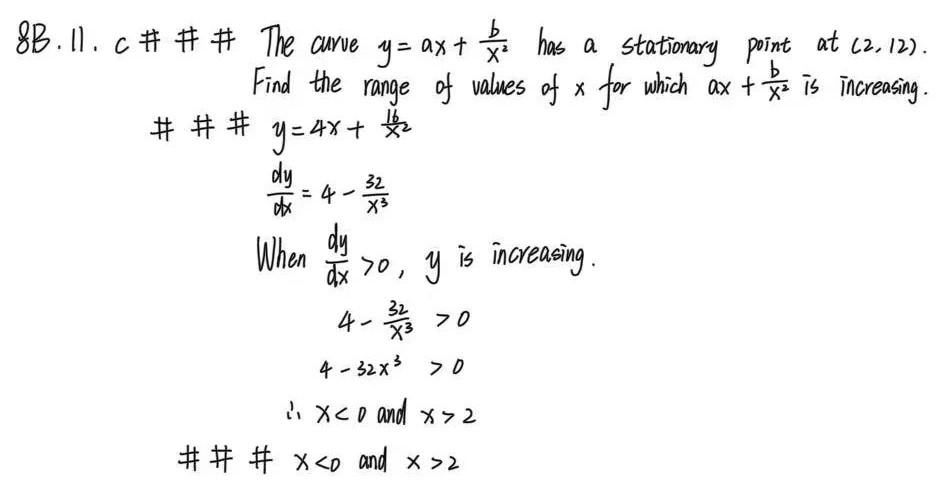 8B.11. c # # # The curve y = ax + b/x² has a stationary point at (2, 12).
Find the range of values of x for which ax + b/x² is increasing.
# # # y = 4x + 16/x²
dy/dx = 4 - 32/x³
When dy/dx > 0, y is increasing.
4 - 32/x³ > 0
4 - 32x³ > 0
∴ x < 0 and x > 2
# # # x < 0 and x > 2